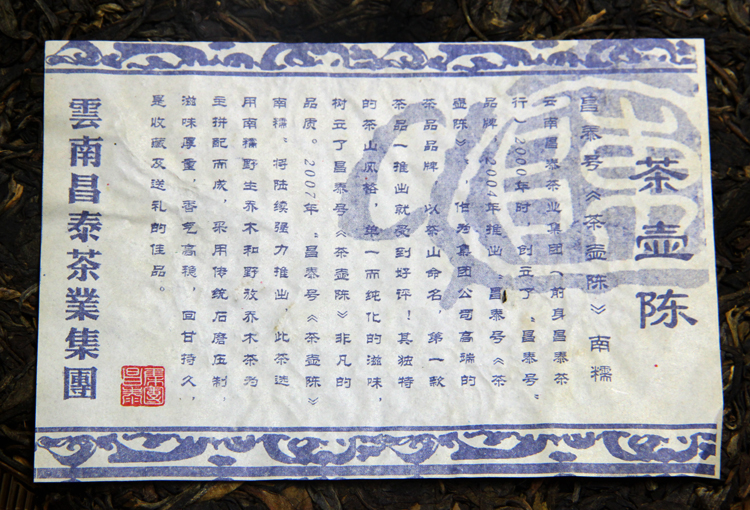 茶壶陈
昌泰号《茶壶陈》南糯
云南昌泰茶业集团（前身昌泰茶
行）2000年时 创立了“昌泰号”
品牌，2004年推出“昌泰号《茶
壶陈》”，作为集团公司高端的
茶品品牌，以茶山命名，第一款
茶品一推出就受到好评！其独特
的茶山风格，单一而纯化的滋味，
树立了昌泰号《茶壶陈》非凡的
品质。2007年“昌泰号《茶壶陈》
南糯”将陆续强力推出，此茶选
用南糯野生乔木和野放乔木茶为
主拼配而成，采用传统石磨压制，
滋味厚重，香气高稳，回甘持久，
是收藏及送礼的佳品。
雲南昌泰茶業集團